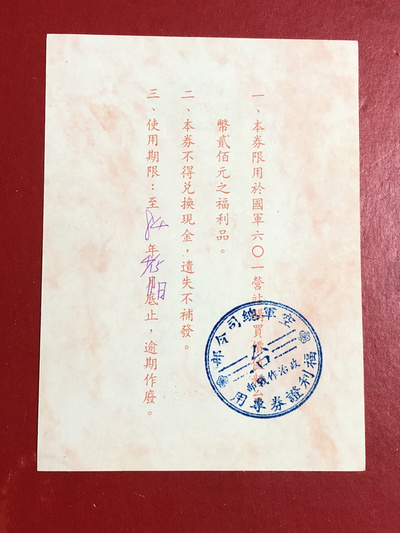 一、本券限用於國軍六〇一營站購買
幣貳佰元之福利品。
二、本券不得兌換現金，遺失不補發。
三、使用期限：至84年月底止，逾期作廢。
空軍總司令部
政治作戰部
福利證券專用